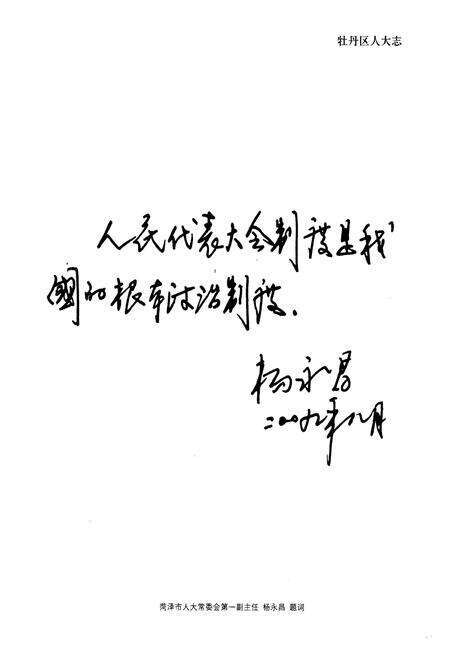 牡丹区人大志
人民代表大会制度是我
国的根本政治制度.
杨永昌
二〇〇九年八月
菏泽市人大常委会第一副主任 杨永昌 题词